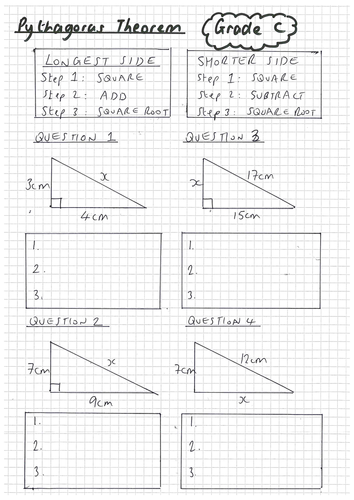 Pythagoras Theorem
Grade C
LONGEST SIDE
Step 1: SQUARE
Step 2: ADD
Step 3: SQUARE ROOT
SHORTER SIDE
Step 1: SQUARE
Step 2: SUBTRACT
Step 3: SQUARE ROOT
QUESTION 1
3cm
x
4cm
1.
2.
3.
QUESTION 3
x
17cm
15cm
1.
2.
3.
QUESTION 2
7cm
x
9cm
1.
2.
3.
QUESTION 4
7cm
12cm
x
1.
2.
3.